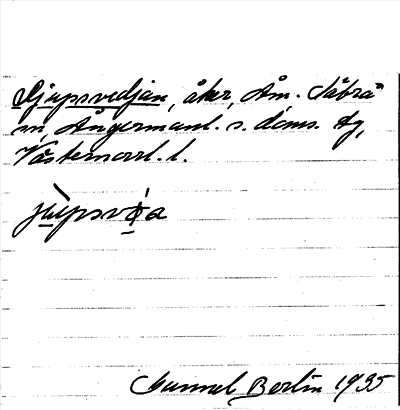 Djupsvedjan, åker, Åm. Säbrå
sn, Ångermanl. s. doms. tg,
Västernorrl. l.
Gunnel Berlin 1935